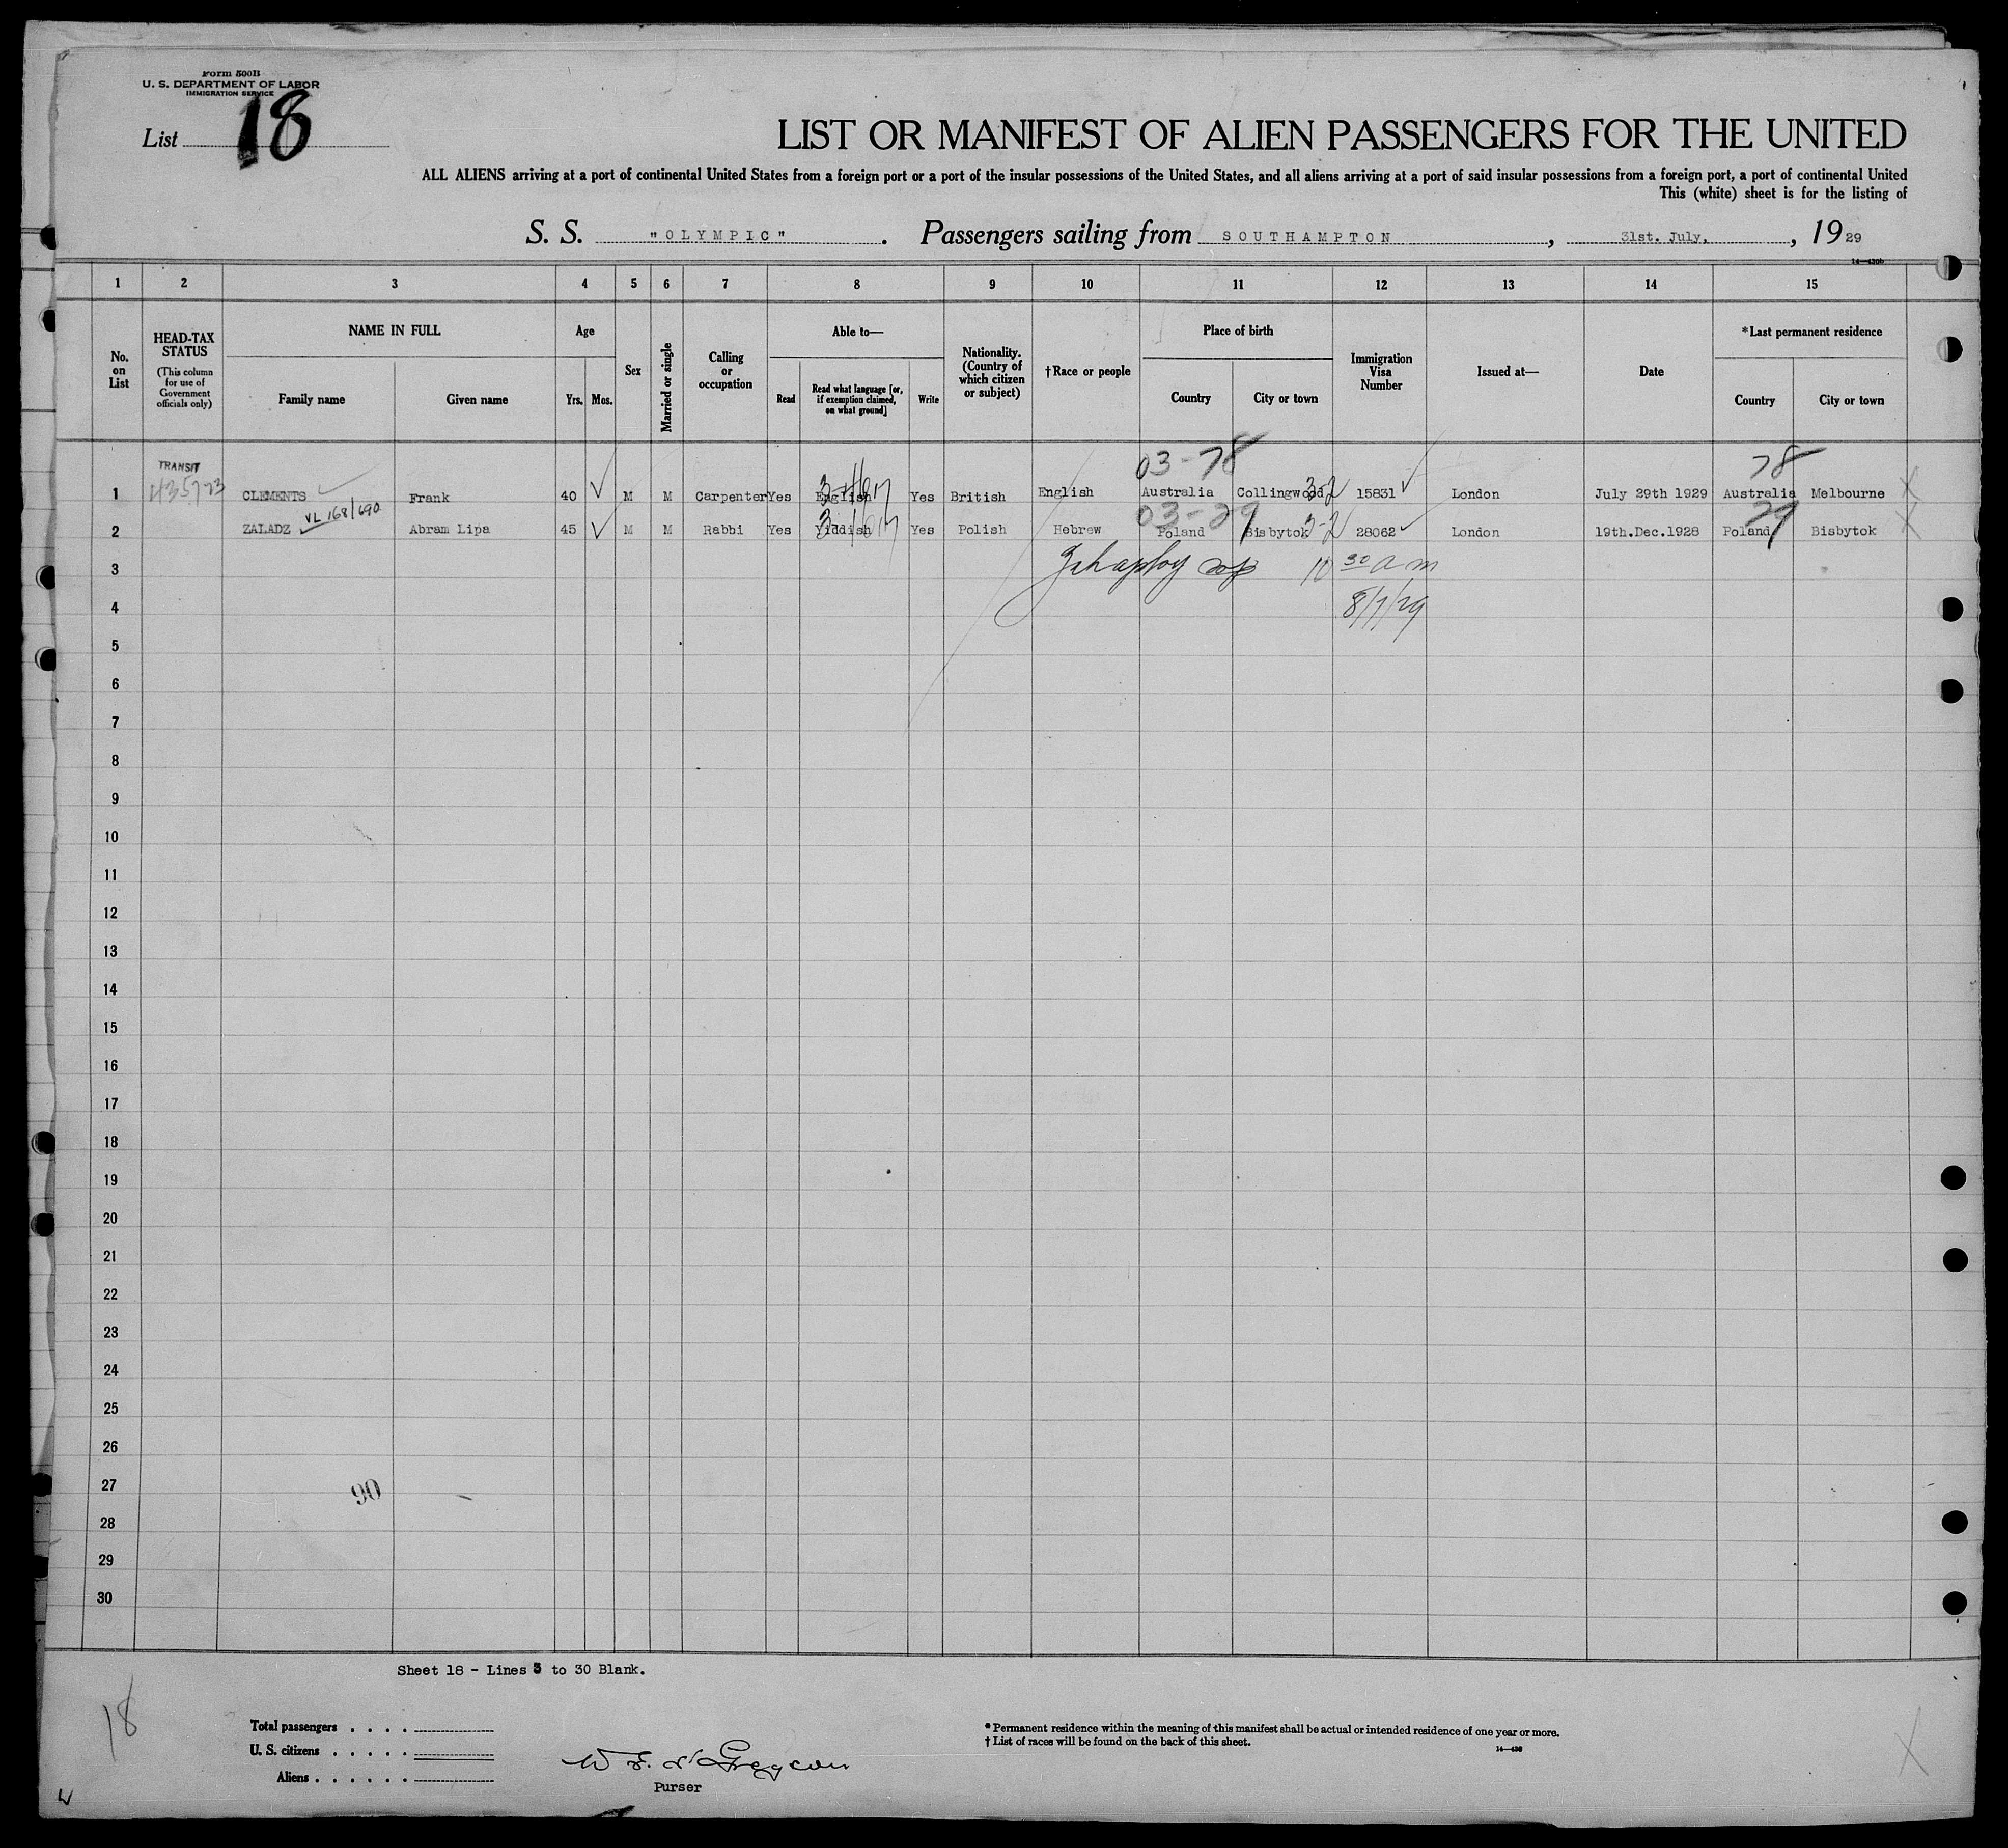 Form 500B
U. S. DEPARTMENT OF LABOR
IMMIGRATION SERVICE
List 18
LIST OR MANIFEST OF ALIEN PASSENGERS FOR THE UNITED
ALL ALIENS arriving at a port of continental United States from a foreign port or a port of the insular possessions of the United States, and all aliens arriving at a port of said insular possessions from a foreign port, a port of continental United
This (white) sheet is for the listing of
S. S. "OLYMPIC". Passengers sailing from SOUTHAMPTON, 31st. July, , 1929
1 2 3 4 5 6 7 8 9 10 11 12 13 14 15
No. on List
HEAD-TAX STATUS
(This column for use of Government officials only)
NAME IN FULL
Family name Given name
Age
Yrs. Mos.
Sex
Married or single
Calling or occupation
Able to—
Read
Read what language [or, if exemption claimed, on what ground]
Write
Nationality. (Country of which citizen or subject)
†Race or people
Place of birth
Country City or town
Immigration Visa Number
Issued at—
Date
*Last permanent residence
Country City or town
03-78 78
TRANSIT
1 CLEMENTS Frank 40 M M Carpenter Yes English Yes British English Australia Collingwood 3-2 15831 London July 29th 1929 Australia Melbourne
VL 168/690
03-29 29
2 ZALADZ Abram Lipa 45 M M Rabbi Yes Yiddish Yes Polish Hebrew Poland Bisbytok 3-2 28062 London 19th.Dec.1928 Poland Bisbytok
3 10 30 a m
4 8/7/29
5
6
7
8
9
10
11
12
13
14
15
16
17
18
19
20
21
22
23
24
25
26
27
90
28
29
30
Sheet 18 - Lines 3 to 30 Blank.
18
Total passengers . . . .
U. S. citizens . . . . .
Aliens . . . . . .
Purser
* Permanent residence within the meaning of this manifest shall be actual or intended residence of one year or more.
† List of races will be found on the back of this sheet.